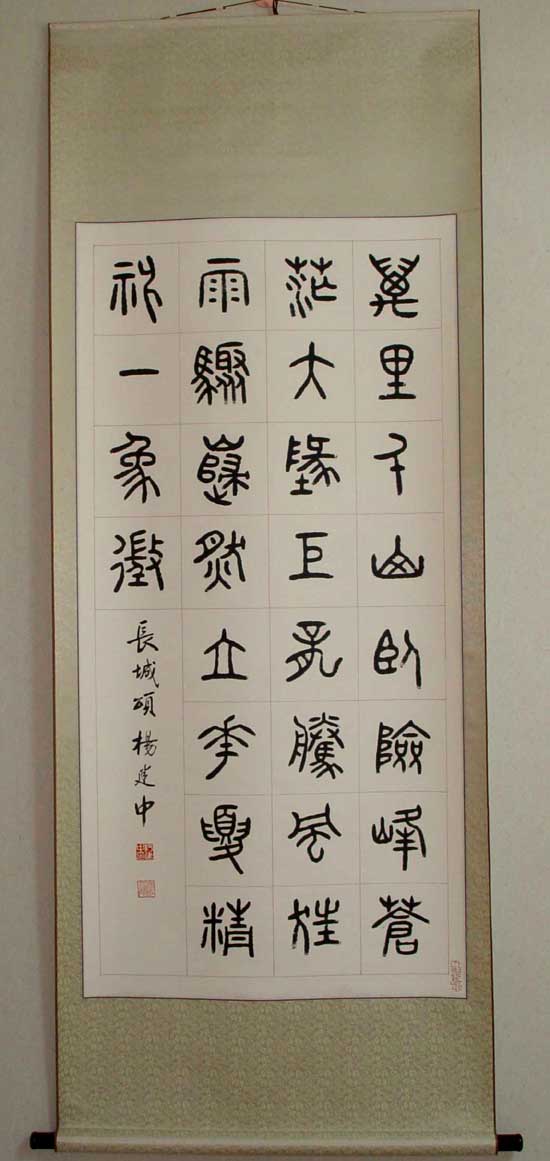 萬里千山臥險峰蒼
茫大地巨龍騰風狂
雨驟巍然立華夏精
神一象徵
長城頌楊建中